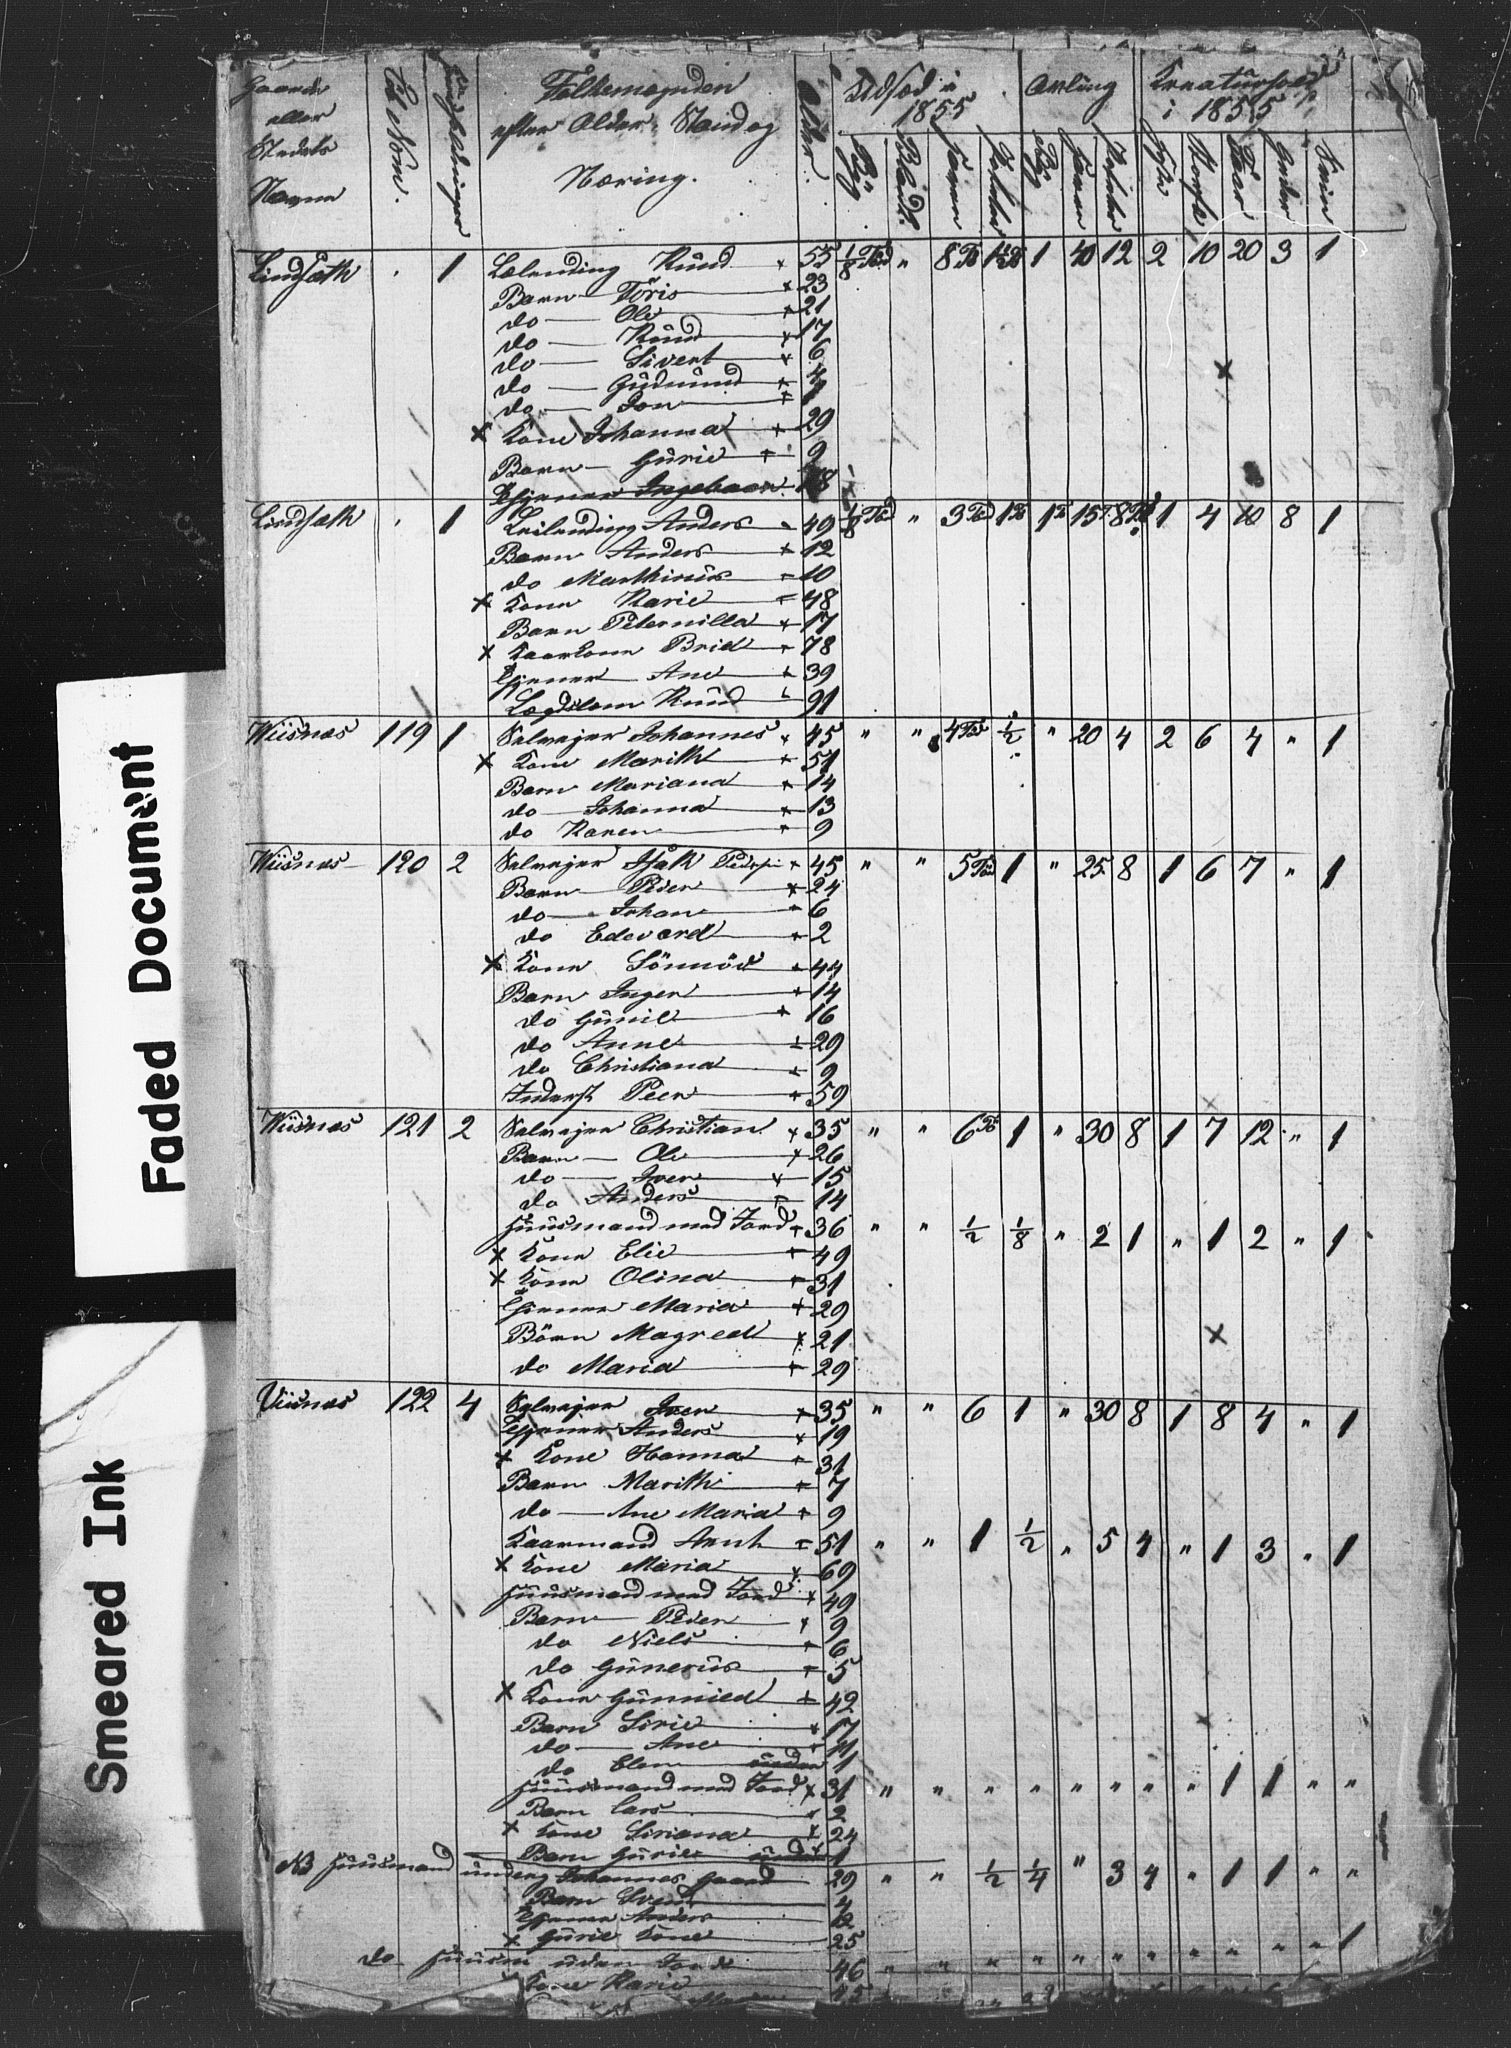 Gaards eller Stedets Navne | No | Huusholdninger | Folkemængden efter Alder Stand og Næring. | Alder | Udsæd i 1855 | Avling | Kreaturhold i 1855
Rug | Blandk. | Havre | Poteter | Rug | Havre | Poteter | Heste | Storfæ | Faar | Geder | Sviin
Lindsæth . 1 Leilending Knud 55 1/8 Td " 8 Td 1 1 40 12 2 10 20 3 1
Barn Töris 23
do Ole 21
do Knud 17
do Sivert 6
do Gudmund 4
do Jon
x Kone Johanna 29
Barn Gurie 9
Tjener Ingebaar 18
Lindsæth . 1 Leilending Anders 49 1/8 Td " 3 Td 1 1 15 8 1 4 10 8 1
Barn Anders 12
do Marthinus 10
x Kone Karie 48
Barn Peternilla 17
x Kaarkone Brid 78
Tjener Ane 39
Lægdslem Knud 91
Wiisnæs 119 1 Selvejer Johannes 45 " " 4 Td 1/2 " 20 4 2 6 4 " 1
x Kone Marith 51
Barn Mariana 14
do Johanna 13
do Karen 9
Wiisnæs 120 2 Selvejer Isak Peders 45 " " 5 Td 1 " 25 8 1 6 7 " 1
Barn Peder 24
do Johan 6
do Edevard 2
x Kone Sönnöv 44
Barn Inger 14
do Gunil 16
do Anne 29
do Christiana 9
Inderst Peer 59
Wiisnæs 121 2 Selvejer Christian 35 " " 6 Td 1 " 30 8 1 7 12 " 1
Barn Ole 26
do Iver 15
do Anders 14
Huusmand med Jord 36 " " 1/2 1/8 " 2 1 " 1 2 " 1
x Kone Elie 49
x Kone Olina 31
Tjener Maria 29
Börn Magred 21
do Maria 29
Viisnæs 122 4 Selvejer Iver 35 " " 6 1 " 30 8 1 8 4 " 1
Tjener Anders 19
x Kone Hanna 31
Barn Marith 7
do Ane Maria 9
Kaarmand Arnt 51 " " 1 1/2 " 5 4 " 1 3 " 1
x Kone Maria 69
Huusmand med Jord 49
Barn Peder 9
do Niels 6
do Gunerus 5
x Kone Gunnild 42
Barn Sirie 17
do Ane 11
do Elen under 1
Huusmand med Jord 31 " " " " " " " " 1 1 " "
Barn Lars 2
x Kone Siriana 24
Barn Gurie under 1
NB Huusmand under Johannes Gaard 29 " " 1/2 1/4 " 3 4 " 1 1 " "
Barn Svend 4
Tjener Anders 12
x Gurie Kone 25
do Huusm uden Jord 46 " " " " " " " " " " " 1
Kone Karie 45
Faded Document
Smeared Ink